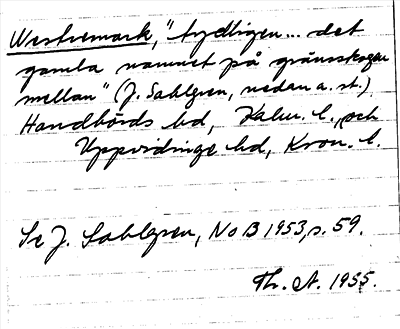 Westremark, "tydligen... det
gamla namnet på gränsskogen
mellan" (J. Sahlgren, nedan a. st.)
Handbörds hd, Kalm. l., och
Uppvidinge hd, Kron. l.
Se J. Sahlgren, NoB 1953, s. 59.
Th. A. 1955.